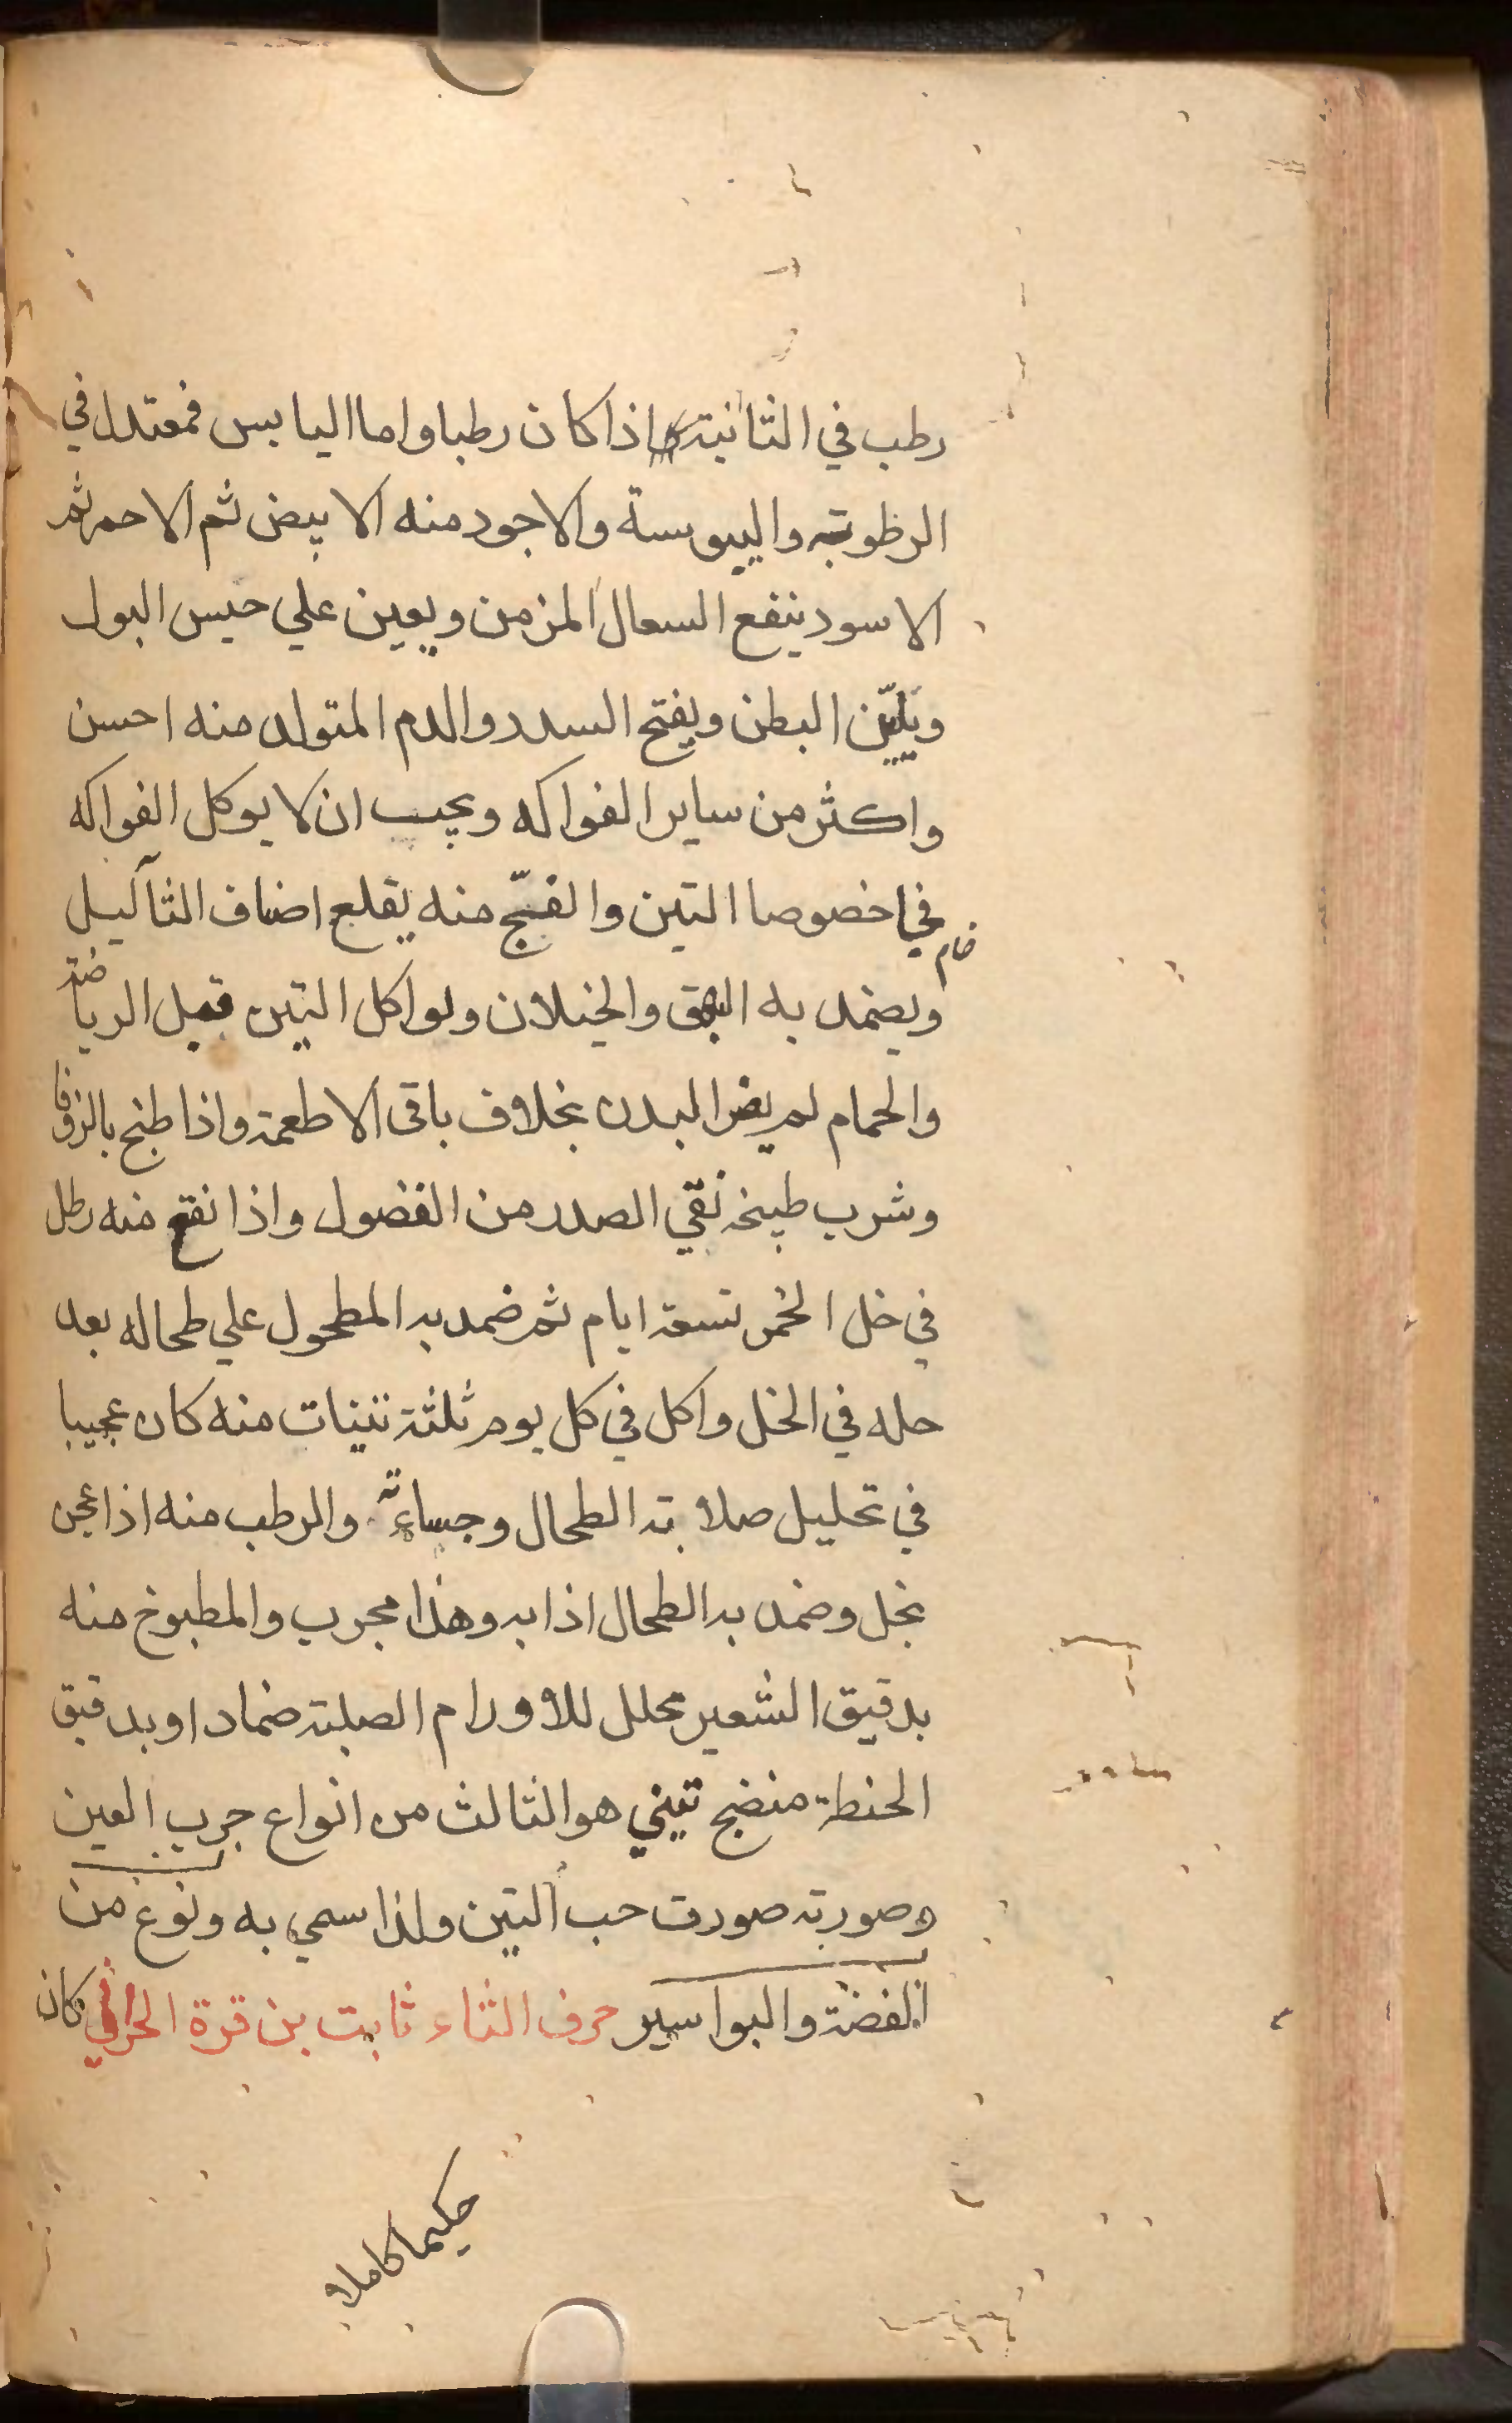 رطب في الثانية اذا كان رطبا واما اليابس فمعتدل في
الرظوبة واليبوسة والاجود منه الابيض ثم الاحمر ثم
الاسود ينفع السعال المزمن ويعين علي حبس البول
ويليّن البطن ويفتح السدد والدم المتولد منه احسن
واكثر من ساير الفواكه ويجب ان لا يوكل الفواكه
في خصوصا التين والفجّ منه يقلع اضاف الثآليل
خام
ويضمد به البهق والخيلان ولو اكل التين قبل الرياضة
والحمام لم يضر البدن بخلاف باقى الاطعمة واذا طبخ بالزوفا
وشرب طبيخه نقي الصدر من الفضول واذا نقع منه رطل
في خل الخمر تسعة ايام ثم ضمد به المطحول علي طحاله بعد
حله في الخل واكل في كل يوم ثلثة تينات منه كان عجيبا
في تحليل صلابة الطحال وجساءته والرطب منه اذا عجن
بخل وضمد به الطحال اذابه وهذا مجرب والمطبوخ منه
بدقيق الشعير محلل للاورام الصلبة ضمادا وبدقيق
الحنطة منضج تيني هو الثالث من انواع جرب العين
وصورته صورت حب التين ولذا سمي به ونوع من
الفضة والبواسير حرف الثاء ثابت بن قرة الحراني كان
حكيما كاملا